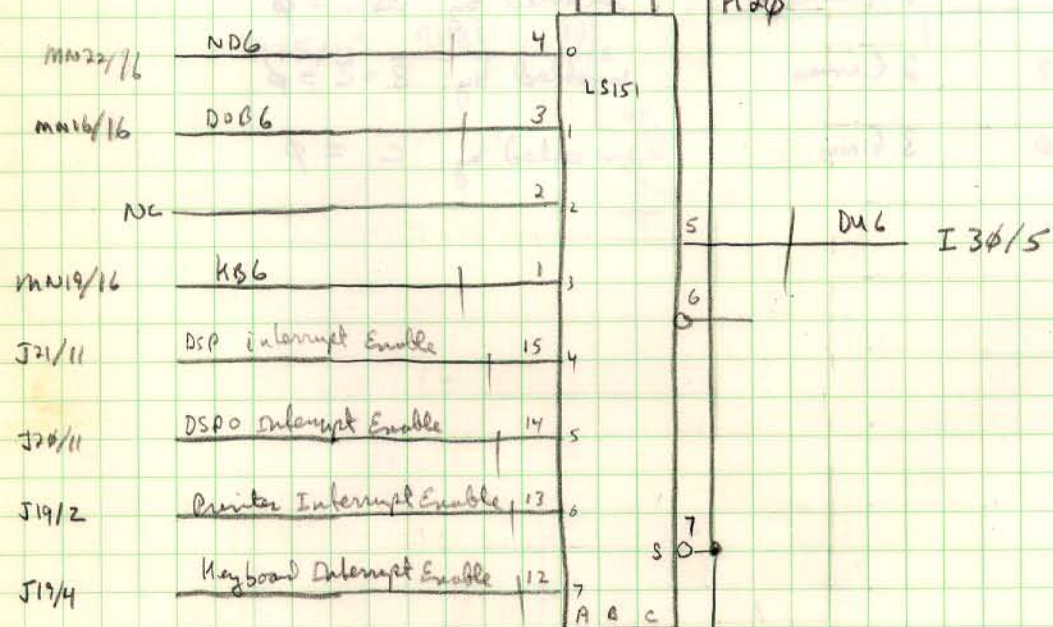 H2φ
MN22/16 ND6 4 0
LS151
MN16/16 DOB6 3 1
NC 2 2
5 DM6 I3φ/5
MN19/16 KB6 1 3
6
J21/11 DSP interrupt Enable 15 4
J2φ/11 DSPO Interrupt Enable 14 5
J19/2 Printer Interrupt Enable 13 6
S 7
J19/4 Keyboard Interrupt Enable 12 7
A B C